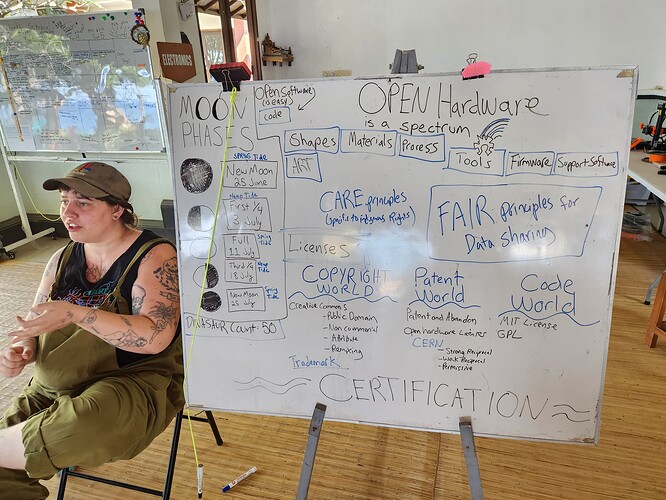 ELECTRONICS
MOON
PHASES
SPRING TIDE
New Moon
25 June
Neap TIDE
First 1/4
3 July
Full
11 July
Spring
TIDE
Third 1/4
18 July
Neap
TIDE
New Moon
25 July
Spring
Tide
DINOSAUR COUNT: 50
Open Software
(is easy)
code
OPEN Hardware
is a spectrum
Shapes
Materials
Process
Tools
Firmware
Support Software
ART
CARE principles
(specific to indigenous Rights)
FAIR principles for
Data sharing
Licenses
COPYRIGHT
WORLD
Creative Commons
- Public Domain
- Non commercial
- Attribute
- Remixing
Trademark
Patent
World
Patent and Abandon
Open hardware Licenses
CERN
- Strong Reciprocal
- Weak Reciprocal
- Permissive
Code
World
MIT License
GPL
CERTIFICATION